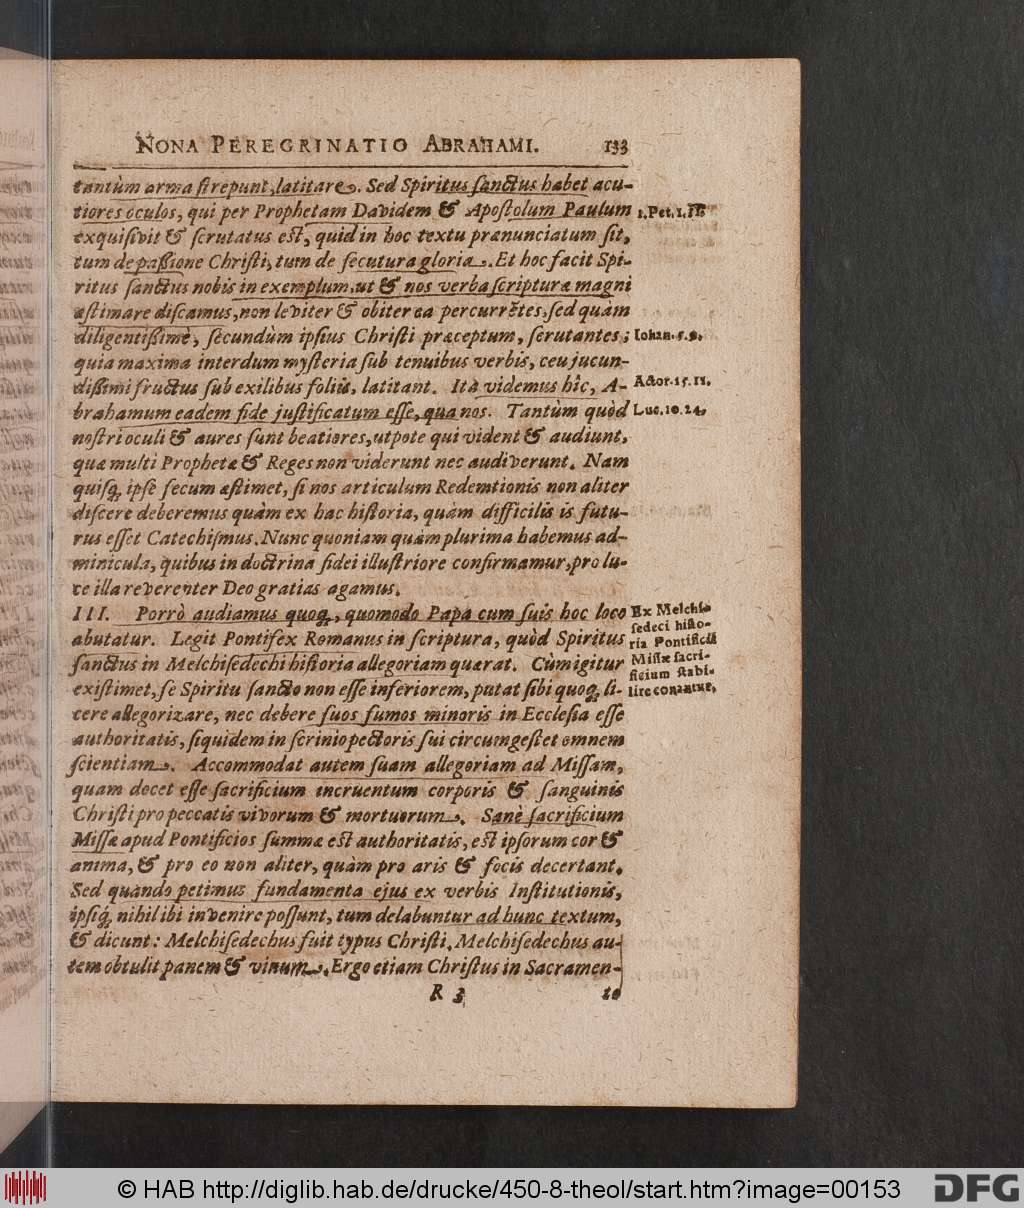 NONA PEREGRINATIO ABRAHAMI. 133
tantùm arma strepunt, latitare. Sed Spiritus sanctus habet acu-
tiores oculos, qui per Prophetam Davidem & Apostolum Paulum
1. Pet. 1. 11.
exquisivit & scrutatus est, quid in hoc textu prænunciatum sit,
tum de passione Christi, tum de secutura gloria. Et hoc facit Spi-
ritus sanctus nobis in exemplum, ut & nos verba scripturæ magni
æstimare discamus, non leviter & obiter ea percurrẽtes, sed quàm
diligentissimè, secundùm ipsius Christi præceptum, scrutantes;
Iohan. 5. 9.
quia maxima interdum mysteria sub tenuibus verbis, ceu jucun-
dissimi fructus sub exilibus foliis, latitant. Ità videmus hîc, A-
Actor. 15. 11.
brahamum eadem fide justificatum esse, qua nos. Tantùm quòd
Luc. 10. 24.
nostri oculi & aures sunt beatiores, utpote qui vident & audiunt,
quæ multi Prophetæ & Reges non viderunt nec audiverunt. Nam
quisq; ipsè secum æstimet, si nos articulum Redemtionis non aliter
discere deberemus quàm ex hac historia, quàm difficilis is futu-
rus esset Catechismus. Nunc quoniam quàm plurima habemus ad-
minicula, quibus in doctrina fidei illustriore confirmamur, pro lu-
ce illa reverenter Deo gratias agamus.
III. Porrò audiamus quoq;, quomodo Papa cum suis hoc loco
abutatur. Legit Pontifex Romanus in scriptura, quòd Spiritus
sanctus in Melchisedechi historia allegoriam quærat. Cùm igitur
existimet, se Spiritu sancto non esse inferiorem, putat sibi quoq; li-
cere allegorizare, nec debere suos fumos minoris in Ecclesia esse
authoritatis, siquidem in scrinio pectoris sui circumgestet omnem
scientiam. Accommodat autem suam allegoriam ad Missam,
Ex Melchi-
sedeci histo-
ria Pontificii
Missæ sacri-
ficium stabi-
lire conantur,
quam docet esse sacrificium incruentum corporis & sanguinis
Christi pro peccatis vivorum & mortuorum. Sanè sacrificium
Missæ apud Pontificios summæ est authoritatis, est ipsorum cor &
anima, & pro eo non aliter, quàm pro aris & focis decertant.
Sed quando petimus fundamenta ejus ex verbis Institutionis,
ipsiq; nihil ibi invenire possunt, tum delabuntur ad hunc textum,
& dicunt: Melchisedechus fuit typus Christi, Melchisedechus au-
tem obtulit panem & vinum. Ergo etiam Christus in Sacramen-
R 3 to
© HAB http://diglib.hab.de/drucke/450-8-theol/start.htm?image=00153 DFG